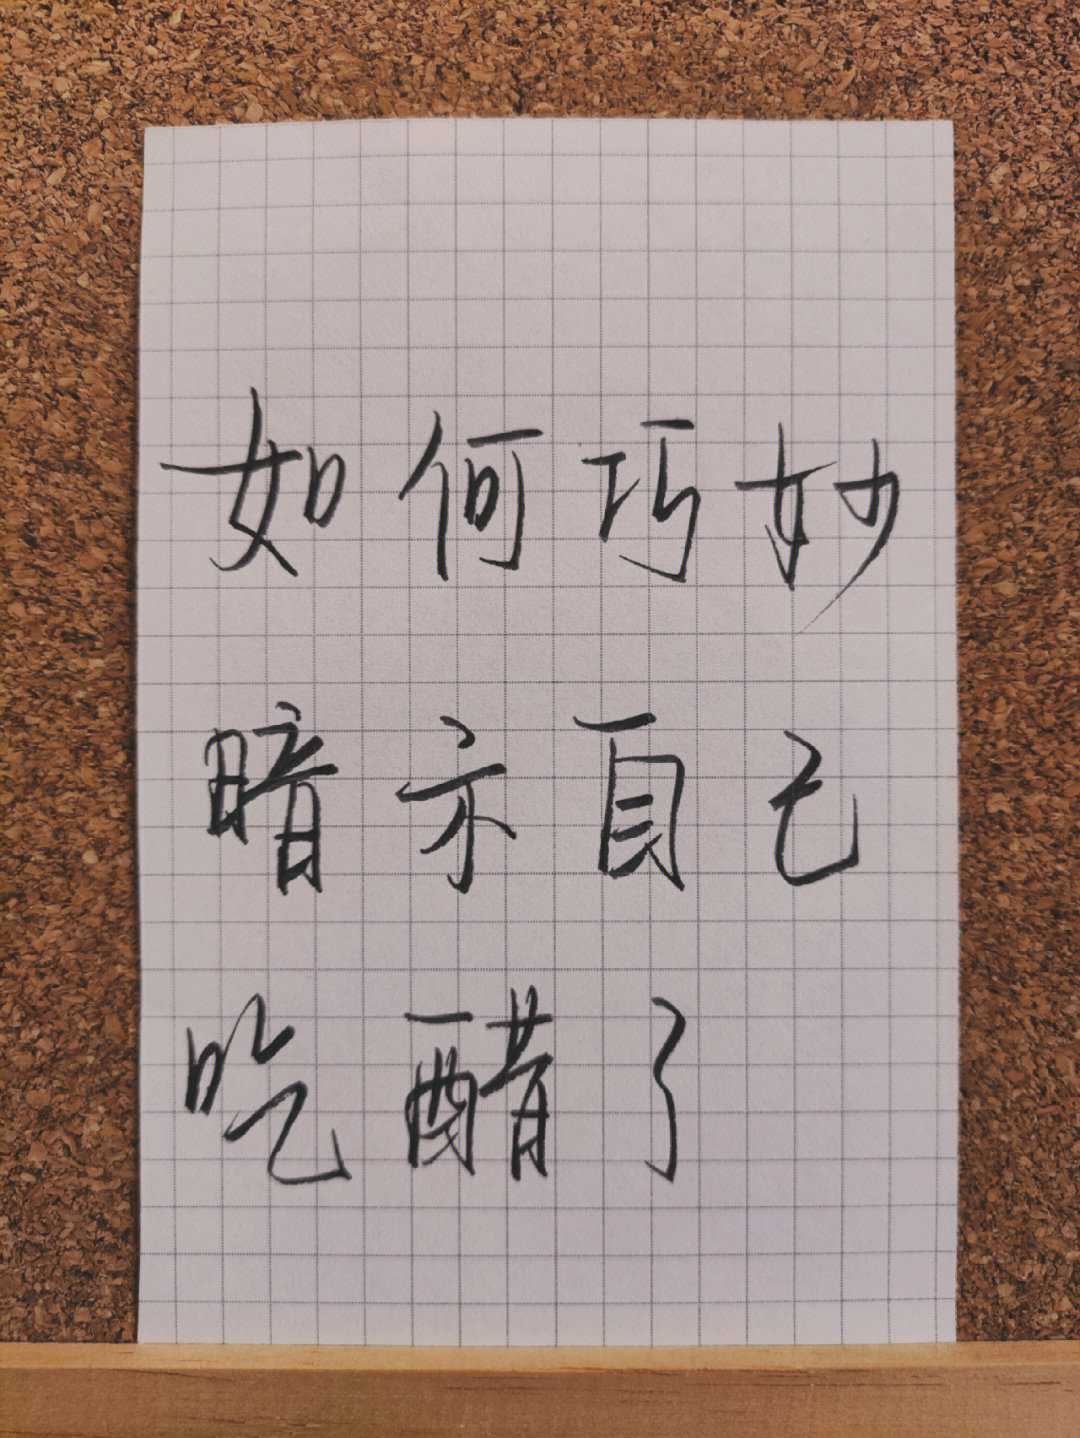 如何巧妙
暗示自己
吃醋了